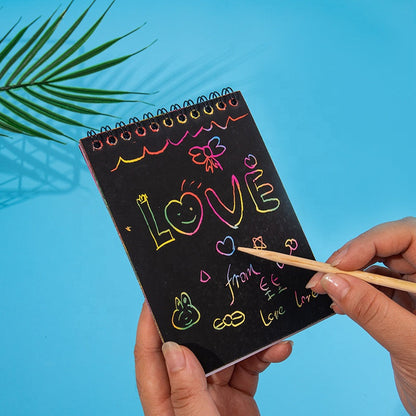 LOVE
from
Love Love